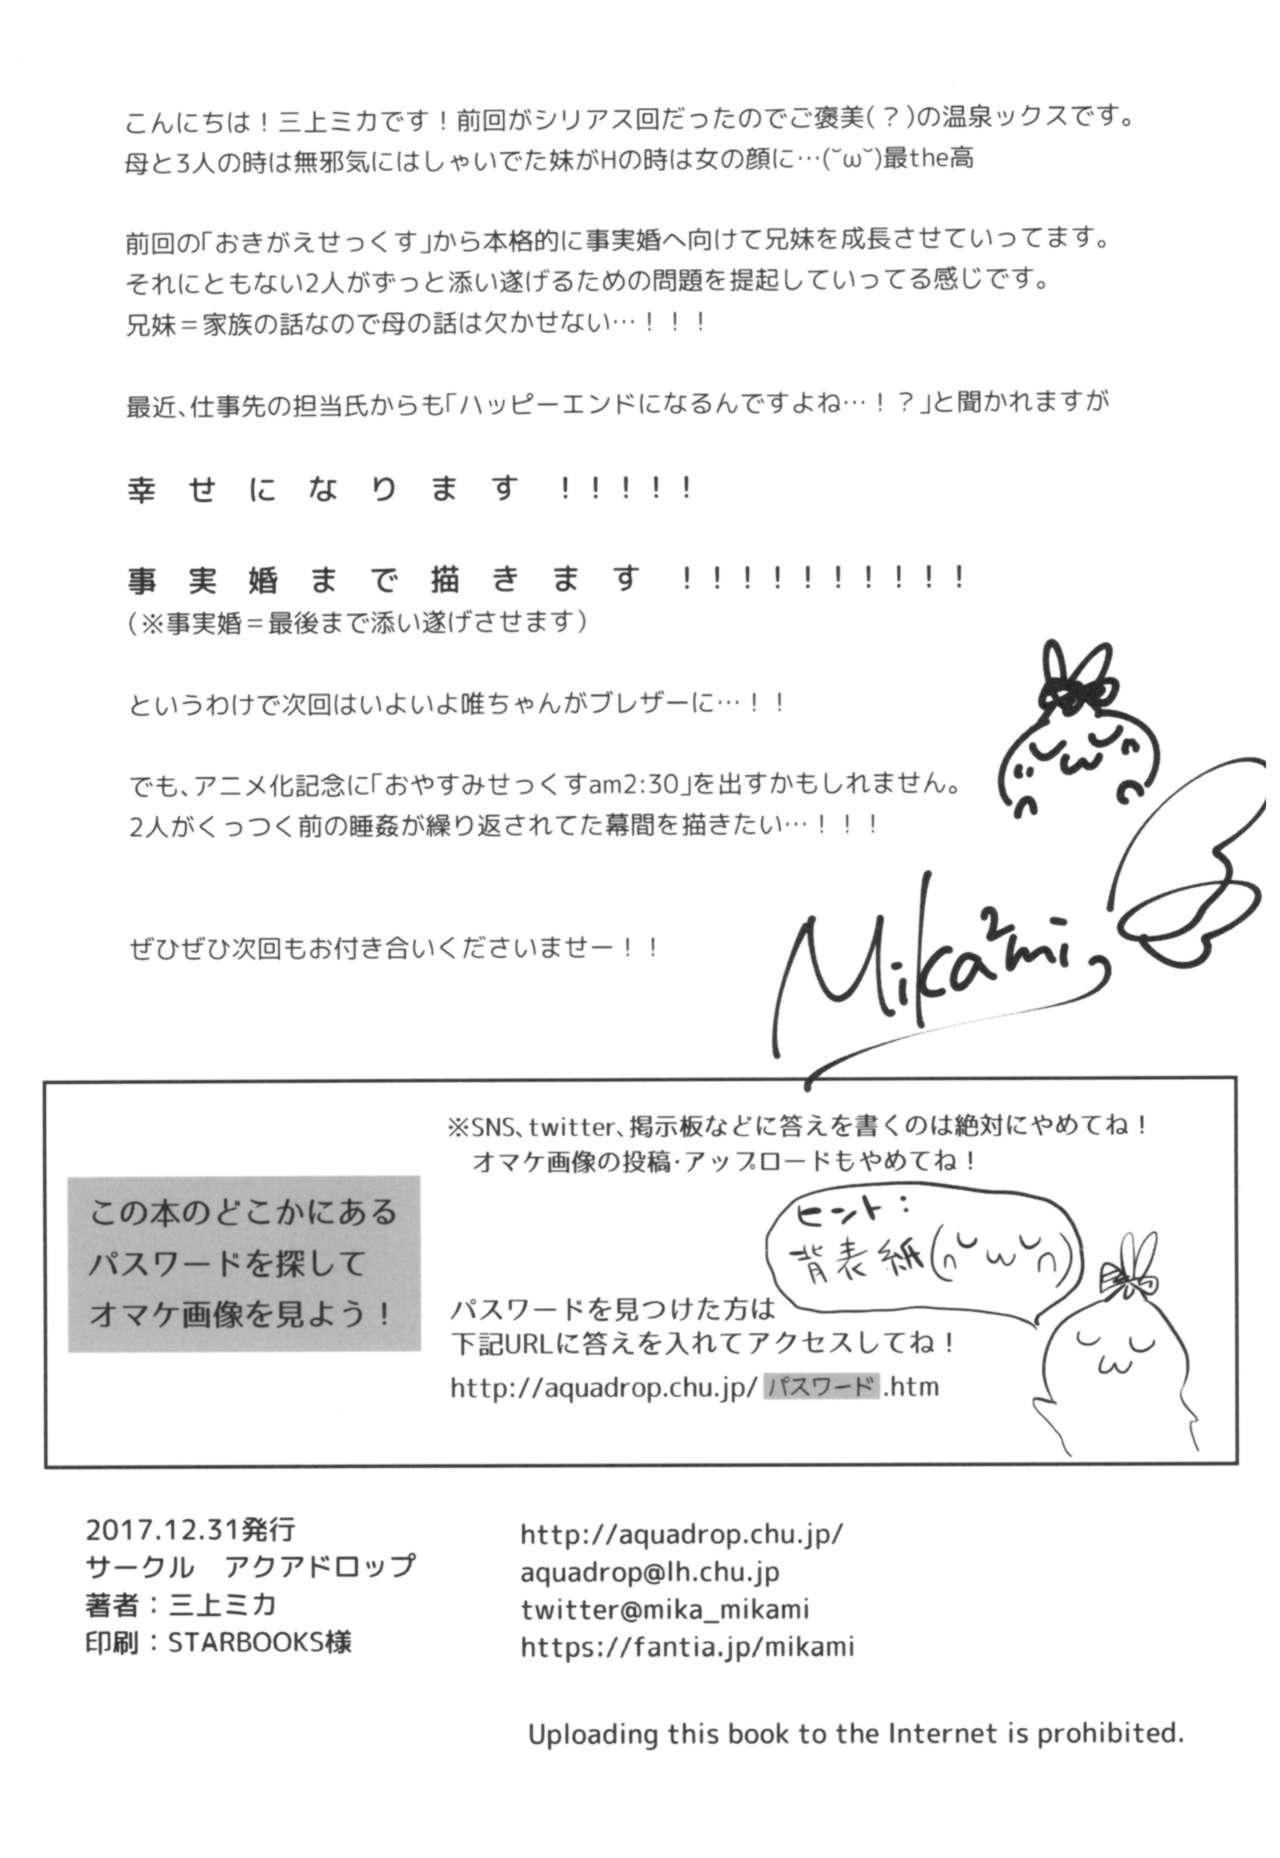 こんにちは！三上ミカです！前回がシリアス回だったのでご褒美(？)の温泉ックスです。
母と3人の時は無邪気にはしゃいでた妹がHの時は女の顔に…(˘ω˘)最the高
前回の「おきがえせっくす」から本格的に事実婚へ向けて兄妹を成長させていってます。
それにともない2人がずっと添い遂げるための問題を提起していってる感じです。
兄妹＝家族の話なので母の話は欠かせない…！！！
最近、仕事先の担当氏からも「ハッピーエンドになるんですよね…！？」と聞かれますが
幸せになります！！！！！
事実婚まで描きます！！！！！！！！！！
（※事実婚＝最後まで添い遂げさせます）
というわけで次回はいよいよ唯ちゃんがブレザーに…！！
でも、アニメ化記念に「おやすみせっくすam2:30」を出すかもしれません。
2人がくっつく前の睡姦が繰り返されてた幕間を描きたい…！！！
ぜひぜひ次回もお付き合いくださいませー！！
Mika2mi
※SNS、twitter、掲示板などに答えを書くのは絶対にやめてね！
オマケ画像の投稿・アップロードもやめてね！
この本のどこかにある
パスワードを探して
オマケ画像を見よう！
ヒント：
背表紙(∩˘ω˘∩)
パスワードを見つけた方は
下記URLに答えを入れてアクセスしてね！
http://aquadrop.chu.jp/パスワード.htm
2017.12.31発行
サークル　アクアドロップ
著者：三上ミカ
印刷：STARBOOKS様
http://aquadrop.chu.jp/
aquadrop@lh.chu.jp
twitter@mika_mikami
https://fantia.jp/mikami
Uploading this book to the Internet is prohibited.